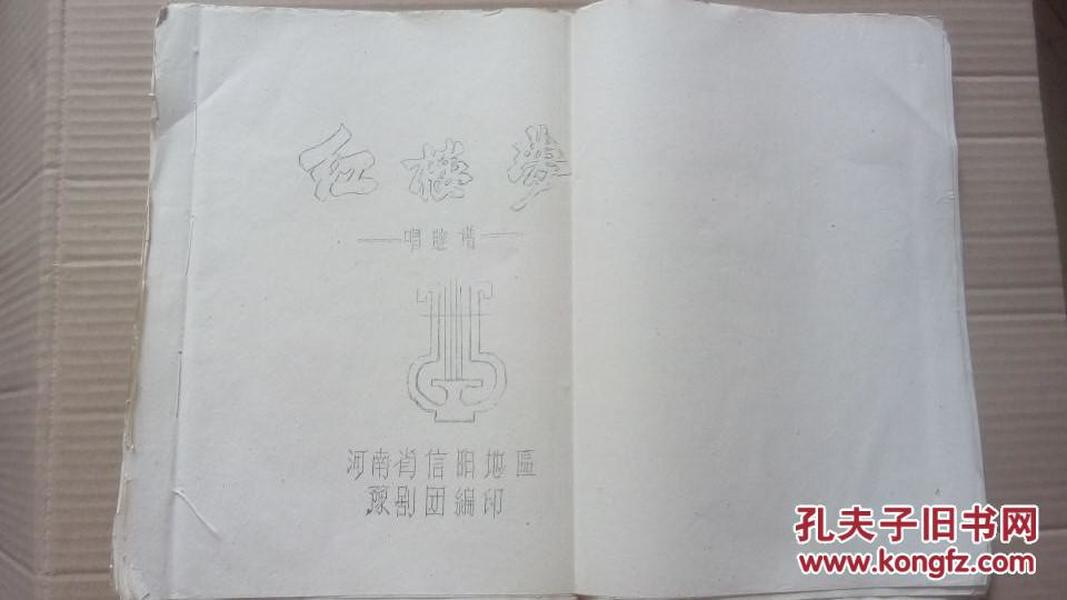 红楼梦
——唱腔谱——
河南省信阳地區
豫剧团編印
孔夫子旧书网
www.kongfz.com